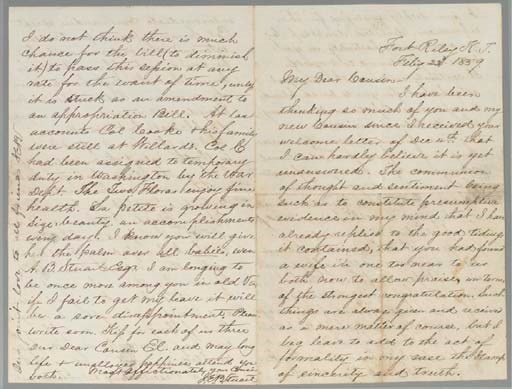 Fort Riley K. T.
Feby 23d 1859
My Dear Cousin
I have been
thinking so much of you and my
new Cousin since I received your
welcome letter of Dec 4th that
I can hardly believe it is yet
unanswered. The communion
of thought and sentiment being
such as to constitute presumptive
evidence in my mind that I have
already replied to the good tidings
it contained, that you had found
a wife in one too near to us
both now to allow praise, in terms
of the strongest congratulation. Such
things are always given and received
as a mere matter of course, but I
beg leave to add to the act of
formality in my case the stamp
of sincerity and truth.
I do not think there is much
chance for the bill (to diminish
it) to pass this session at any
rate for the want of time, unless
it is stuck as an amendment to
an appropriation Bill. At last
accounts Col Cooke & his family
were still at Willards. Col C
had been assigned to temporary
duty in Washington by the War
Dept. The Two Floras enjoy fine
health. La petite is growing in
size, beauty, an accomplishments
every day. I know you will give
her the palm over all babies, even
A. B. Stuart Esqr. I am longing to
be once more among you in old Va.
if I fail to get my leave it will
be a sore disappointment. Please
write soon. Kiss for each of us three
our Dear Cousin El. and may long
life & unalloyed happiness attend you
both.
Most affectionately your Cousin
JEB Stuart
love to all friends